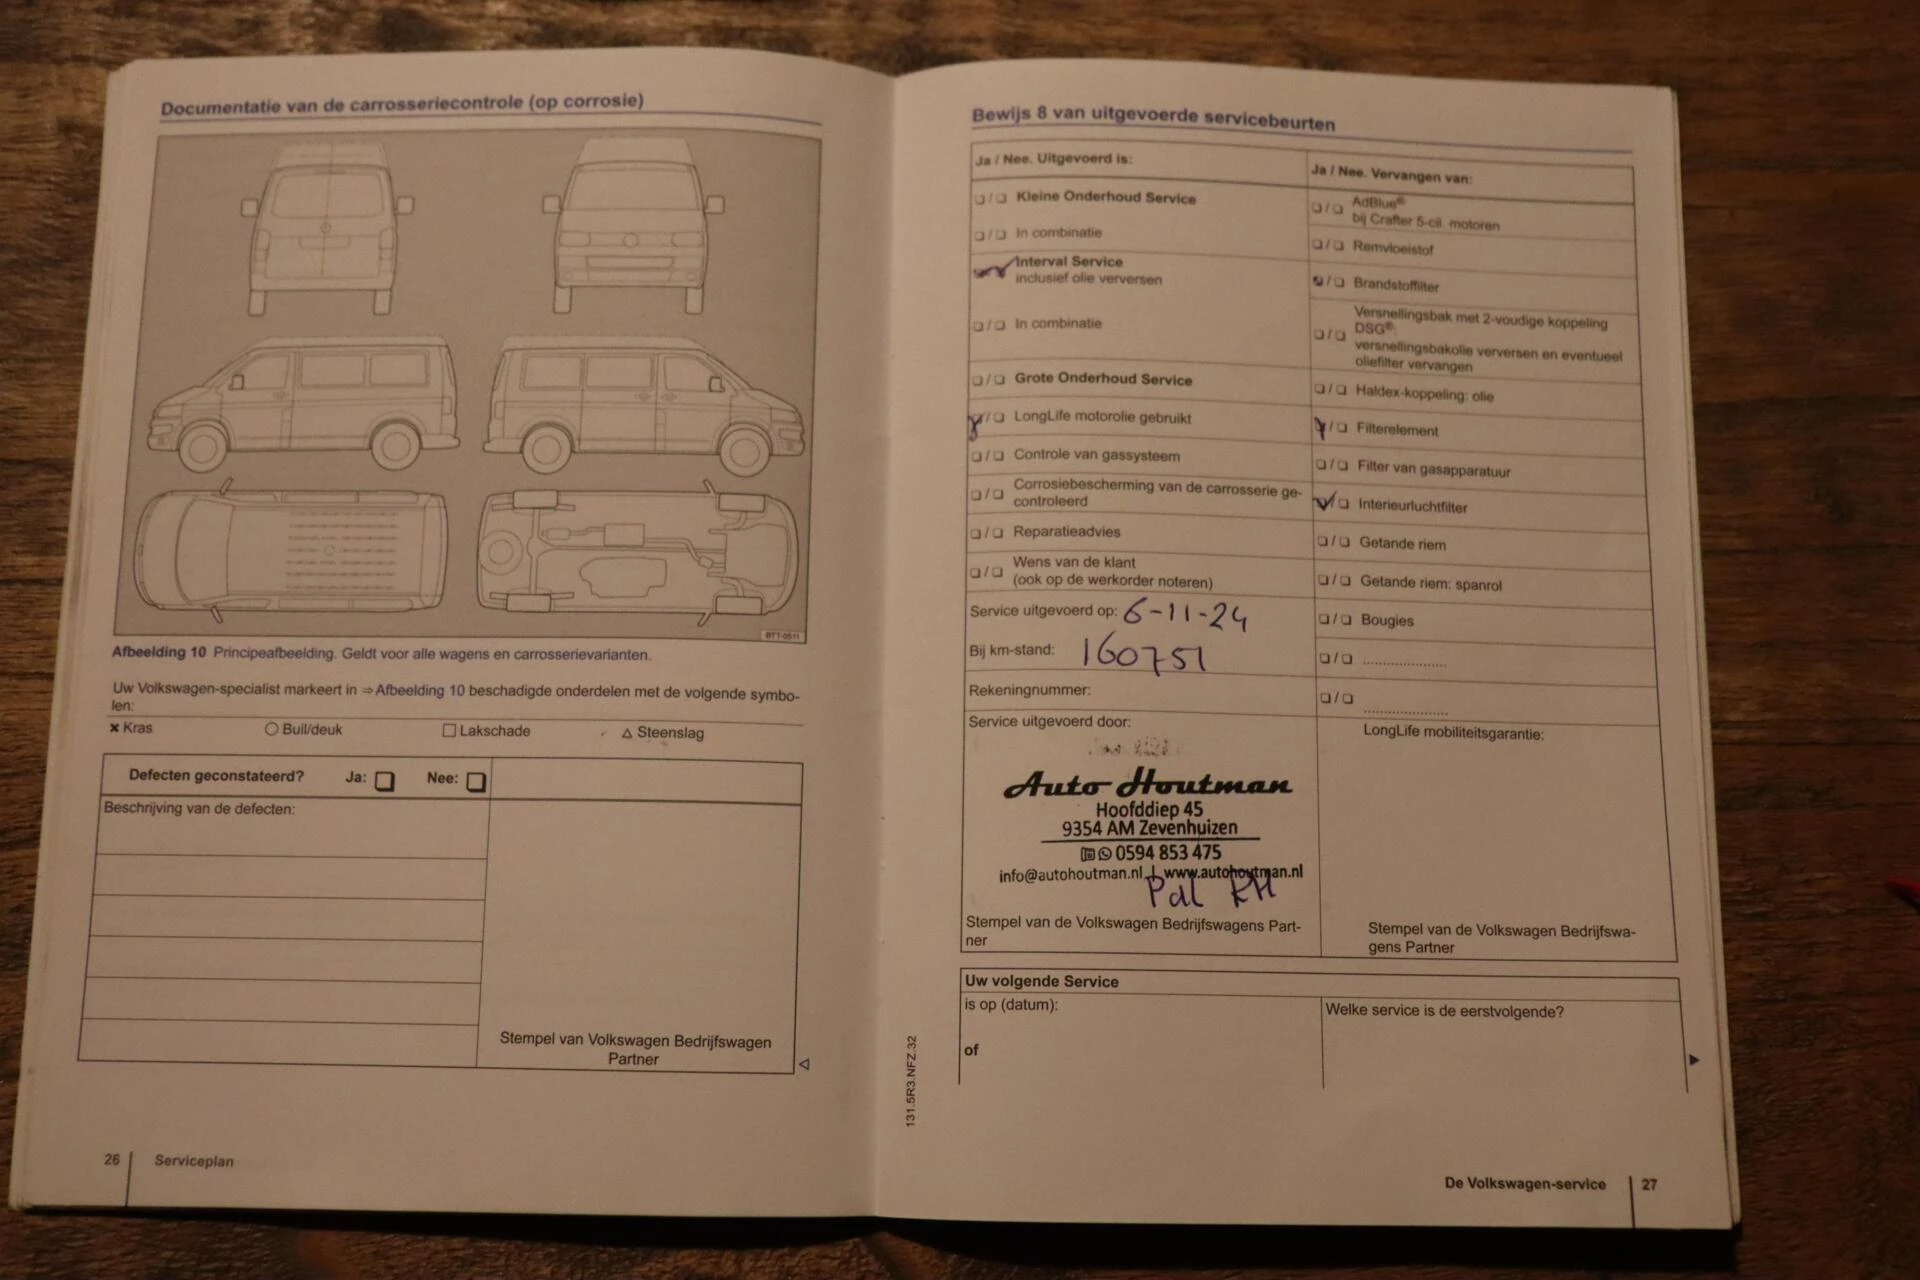 Documentatie van de carrosseriecontrole (op corrosie)
BTT-0511
Afbeelding 10 Principeafbeelding. Geldt voor alle wagens en carrosserievarianten.
Uw Volkswagen-specialist markeert in ⇒ Afbeelding 10 beschadigde onderdelen met de volgende symbo-
len:
× Kras
○ Buil/deuk
□ Lakschade
△ Steenslag
Defecten geconstateerd? Ja: ❑ Nee: ❑
Beschrijving van de defecten:
Stempel van Volkswagen Bedrijfswagen
Partner
26 Serviceplan
Bewijs 8 van uitgevoerde servicebeurten
Ja / Nee. Uitgevoerd is:
❑ / ❑ Kleine Onderhoud Service
❑ / ❑ In combinatie
Interval Service
inclusief olie verversen
❑ / ❑ In combinatie
❑ / ❑ Grote Onderhoud Service
❑ / ❑ LongLife motorolie gebruikt
❑ / ❑ Controle van gassysteem
❑ / ❑ Corrosiebescherming van de carrosserie ge-
controleerd
❑ / ❑ Reparatieadvies
❑ / ❑ Wens van de klant
(ook op de werkorder noteren)
Service uitgevoerd op: 6-11-24
Bij km-stand: 160751
Rekeningnummer:
Service uitgevoerd door:
Auto Houtman
Hoofddiep 45
9354 AM Zevenhuizen
0594 853 475
info@autohoutman.nl | www.autohoutman.nl
Stempel van de Volkswagen Bedrijfswagens Part-
ner
Ja / Nee. Vervangen van:
❑ / ❑ AdBlue®
bij Crafter 5-cil. motoren
❑ / ❑ Remvloeistof
❑ / ❑ Brandstoffilter
Versnellingsbak met 2-voudige koppeling
❑ / ❑ DSG®:
versnellingsbakolie verversen en eventueel
oliefilter vervangen
❑ / ❑ Haldex-koppeling: olie
❑ / ❑ Filterelement
❑ / ❑ Filter van gasapparatuur
❑ / ❑ Interieurluchtfilter
❑ / ❑ Getande riem
❑ / ❑ Getande riem: spanrol
❑ / ❑ Bougies
❑ / ❑ .....................
❑ / ❑ .....................
LongLife mobiliteitsgarantie:
Stempel van de Volkswagen Bedrijfswa-
gens Partner
Uw volgende Service
is op (datum):
of
Welke service is de eerstvolgende?
131.5R3.NFZ.32
De Volkswagen-service 27